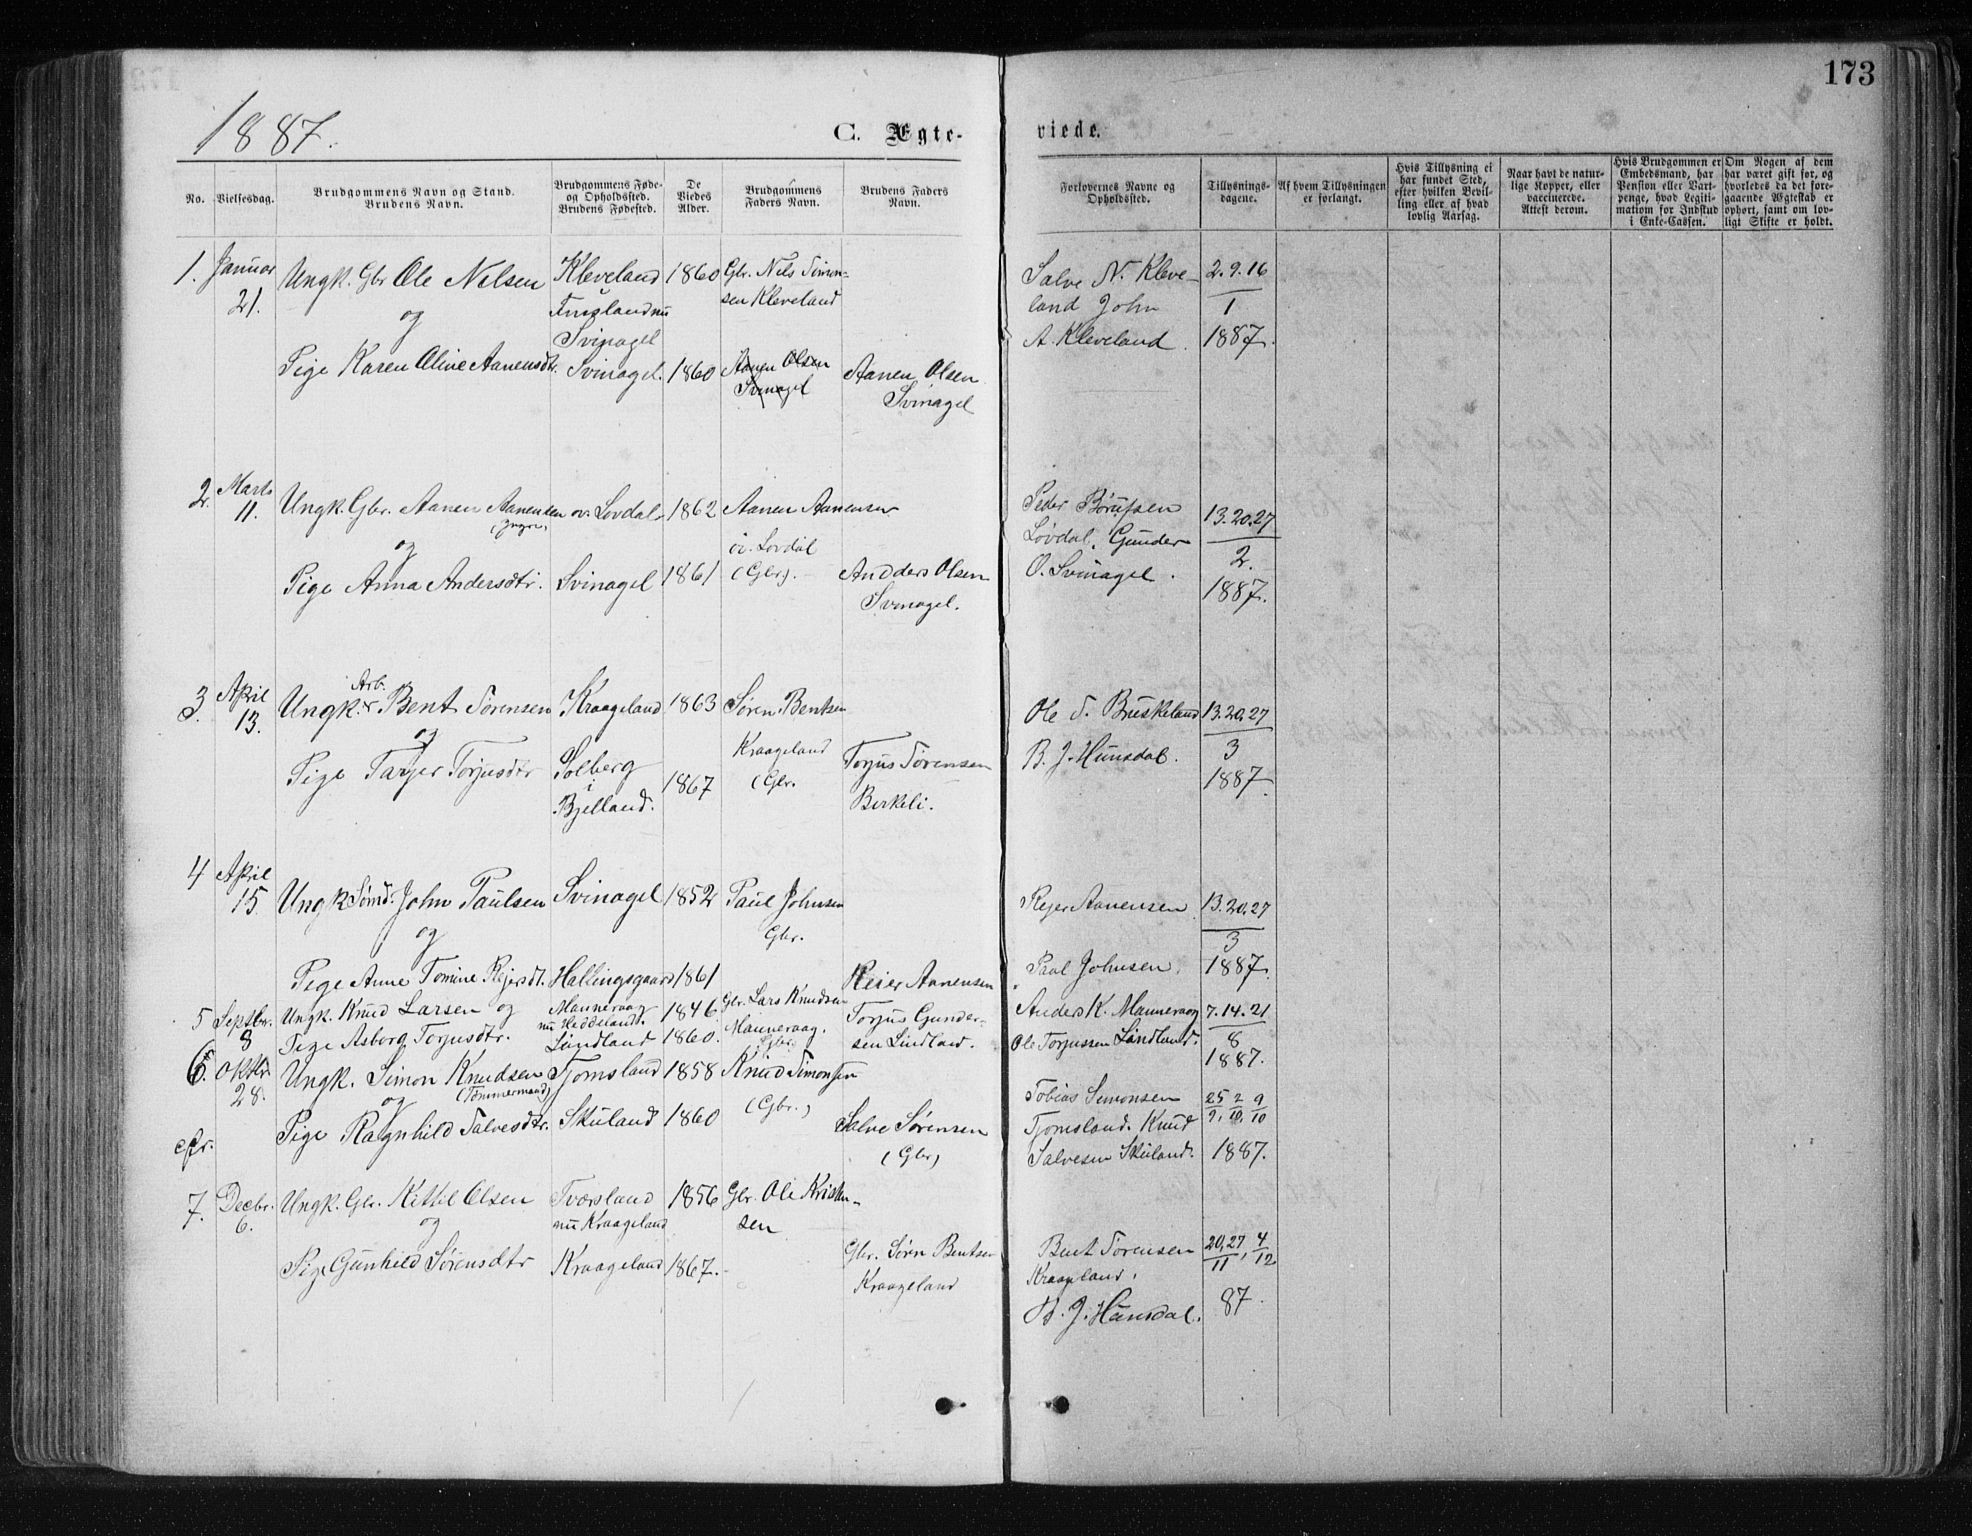 173
1887.
C. Ægte-
viede.
No.
Vielsesdag.
Brudgommens Navn og Stand.
Brudens Navn.
Brudgommens Føde-
og Opholdssted.
Brudens Fødested.
De
Viedes
Alder.
Brudgommens
Faders Navn.
Brudens Faders
Navn.
Forlovernes Navne og
Opholdssted.
Tillysnings-
dagene.
Af hvem Tillysningen
er forlangt.
Hvis Tillysning ei
har fundet Sted,
efter hvilken Bevil-
ling eller af hvad
lovlig Aarsag.
Naar havt de natur-
lige Kopper, eller
vaccinerede.
Attest derom.
Hvis Brudgommen er
Embedsmand, har
Pension eller Vart-
penge, hvad Legiti-
mation for Indskud
i Enke-Cassen.
Om Nogen af dem
har været gift før, og
hvorledes da det fore-
gaaende Ægteskab er
ophørt, samt om lov-
ligt Skifte er holdt.
1. Januar Ungk. Gbr Ole Nilsen Kleveland 1860 Gbr. Nils Simon- Salve N. Kleve- 2.9.16
21. og Finslandnu sen Kleveland land John 1
Svinagel A. Kleveland. 1887.
Pige Karen Oline Aanensdtr. Svinagel. 1860 Aanen Olsen Aanen Olsen
Svinagel Svinagel
2. Marts Ungk. Gbr. Aanen Aanensen ov. Lovdal 1862 Aanen Aanensen Peder Börufsen 13.20.27
11. (Yngre) og öv. Lovdal Løvdal. Gunder 2.
Pige Anna Andersdtr. Svinagel 1861 (Gbr). Andders Olsen O. Svinagel. 1887.
Svinagel.
3. April Arb. Ungk. Bent Sörensen Kraageland 1863 Søren Bentsen Ole S. Bruskeland 13.20.27
13. og Kraageland B. J. Hunsdal. 3
Pige Tarjer Torjusdtr Solberg i Bjelland. 1867 (Gbr. Torjus Törensen 1887.
Birkeli.
4 April Ungk Sömd. John Paulsen Svinagel 1852 Paul Johnsen Rejer Aanensen 13.20.27
15. og Gbr. 3
Pige Anne Tomine Rejersdt. Hallingsgaard 1861 Reier Aanensen Paul Johnsen. 1887.
5 Septbr. Ungk. Knud Larsen og Manneraag 1846 Gbr. Lars Knudsen Torjus Gunder- Anders K. Manneraag 7.14.21
8 nu Heddeland. Manneraag. 8
Pige Asborg Torjusdtr. Lindland 1860. Gbr. sen Lindland. Ole Torjussen Lindland. 1887.
6. Oktbr Ungk. Simon Knudsen Tjomsland 1858 Knud Simonsen Tobias Simonsen 25/9, 2/10, 9/10
28. (Tömmermand) og (Gbr.) Tjomsland. Knud
cfr. Pige Ragnhild Salvesdtr. Skuland 1860 Salve Sørensen Salvesen Skuland. 1887.
(Gbr)
7. Decbr. Ungk. Gbr. Kittil Olsen Tværsland 1856 Gbr. Ole Kristen-
6. og nu Kraageland sen
Pige Gunhild Sørensdtr Kraageland 1867. Gbr. Sørn Bentsen Bent Sørensen 20,27/11, 4/12
Kraageland Kraageland.
B. J. Hunsdal. 87.